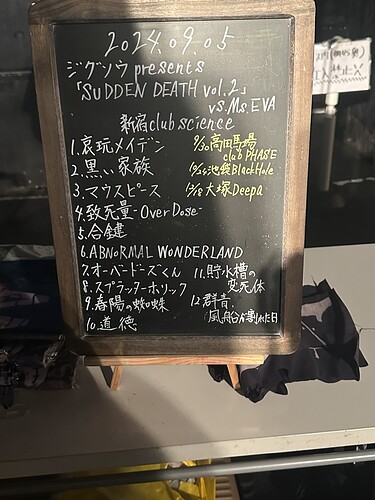 2024.09.05
ジグソウ presents
「SUDDEN DEATH vol.2」
vs.Ms.EVA
新宿club science
1.哀玩メイデン
2.黒い家族
3.マウスピース
4.致死量-Over Dose-
5.合鍵
6.ABNORMAL WONDERLAND
7.オーバードーズくん
8.スプラッターホリック
9.春陽の蜘蛛
10.道徳
11.貯水槽の
変死体
12.群青、
風船が割れた日
9/30高田馬場
club PHASE
池袋BlackHole
12/18大塚Deepa